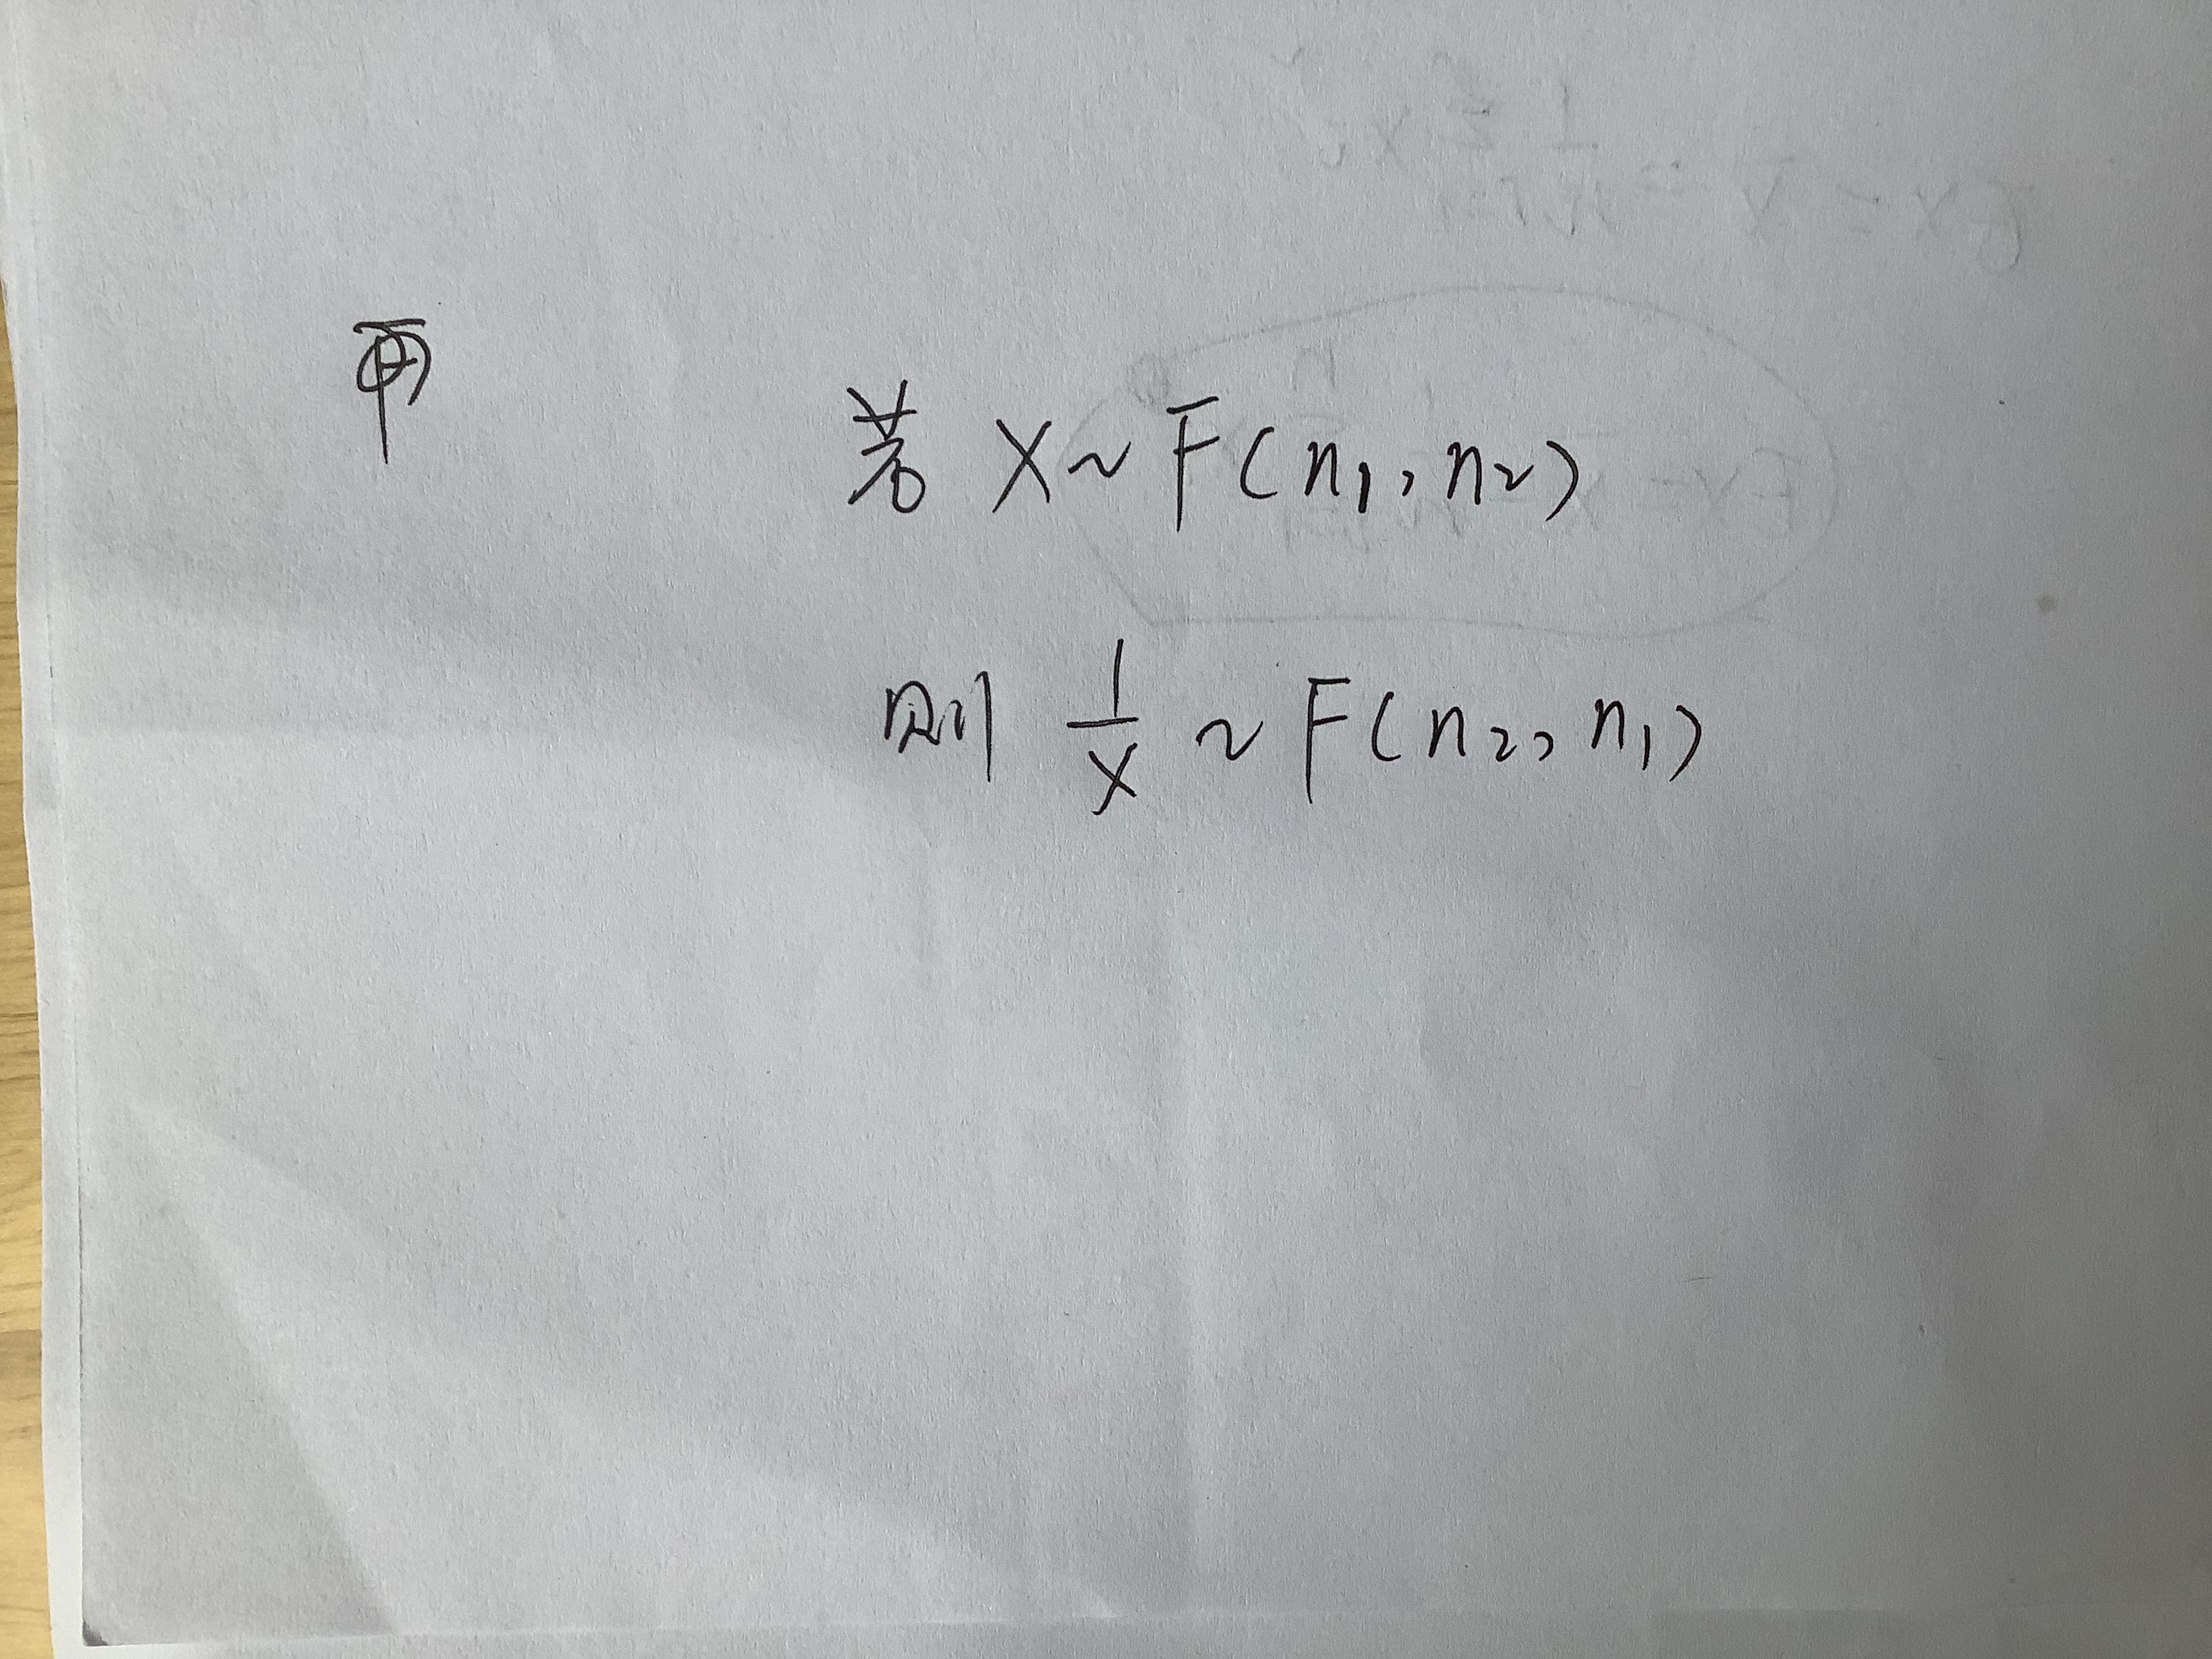 若 X ~ F(n₁, n₂)
则 1/X ~ F(n₂, n₁)